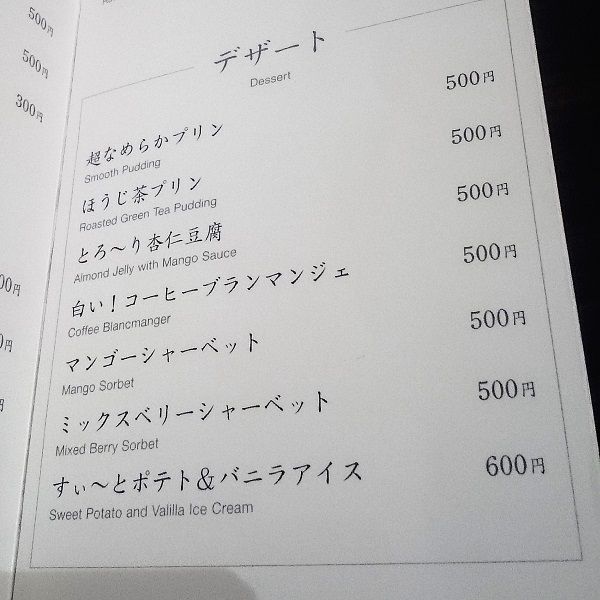 500円
500円
300円
00円
円
デザート
Dessert
超なめらかプリン 500円
Smooth Pudding
ほうじ茶プリン 500円
Roasted Green Tea Pudding
とろ〜り杏仁豆腐 500円
Almond Jelly with Mango Sauce
白い！コーヒーブランマンジェ 500円
Coffee Blancmanger
マンゴーシャーベット 500円
Mango Sorbet
ミックスベリーシャーベット 500円
Mixed Berry Sorbet
すぃ〜とポテト&バニラアイス 600円
Sweet Potato and Valilla Ice Cream